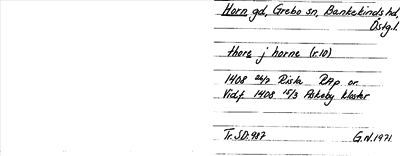 Horn gd, Grebo sn, Bankekinds hd,
Östg.l.
thore j horne (r.10)
1408 22/7 Rista RAp or.
Vidf 1408 15/3 Askeby kloster
Tr. SD: 987 G.N. 1971